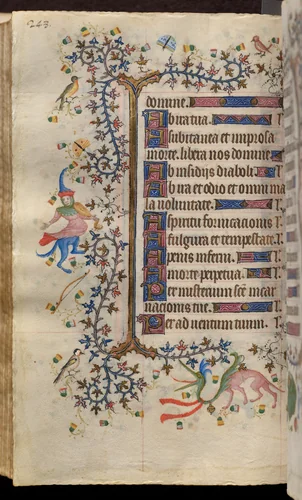 243.
domine.
Ab ira tua.
A subitanea et improsa
morte. libera nos domine
Ab insidijs diaboli.
Ab ira et odio et omni ma
la voluntate.
A spiritu fornicationis
A fulgure et tempestate.
A penis inferni.
A morte perpetua.
Per misterium sce incar
nacionis tue.
Per ad uentum tuum.